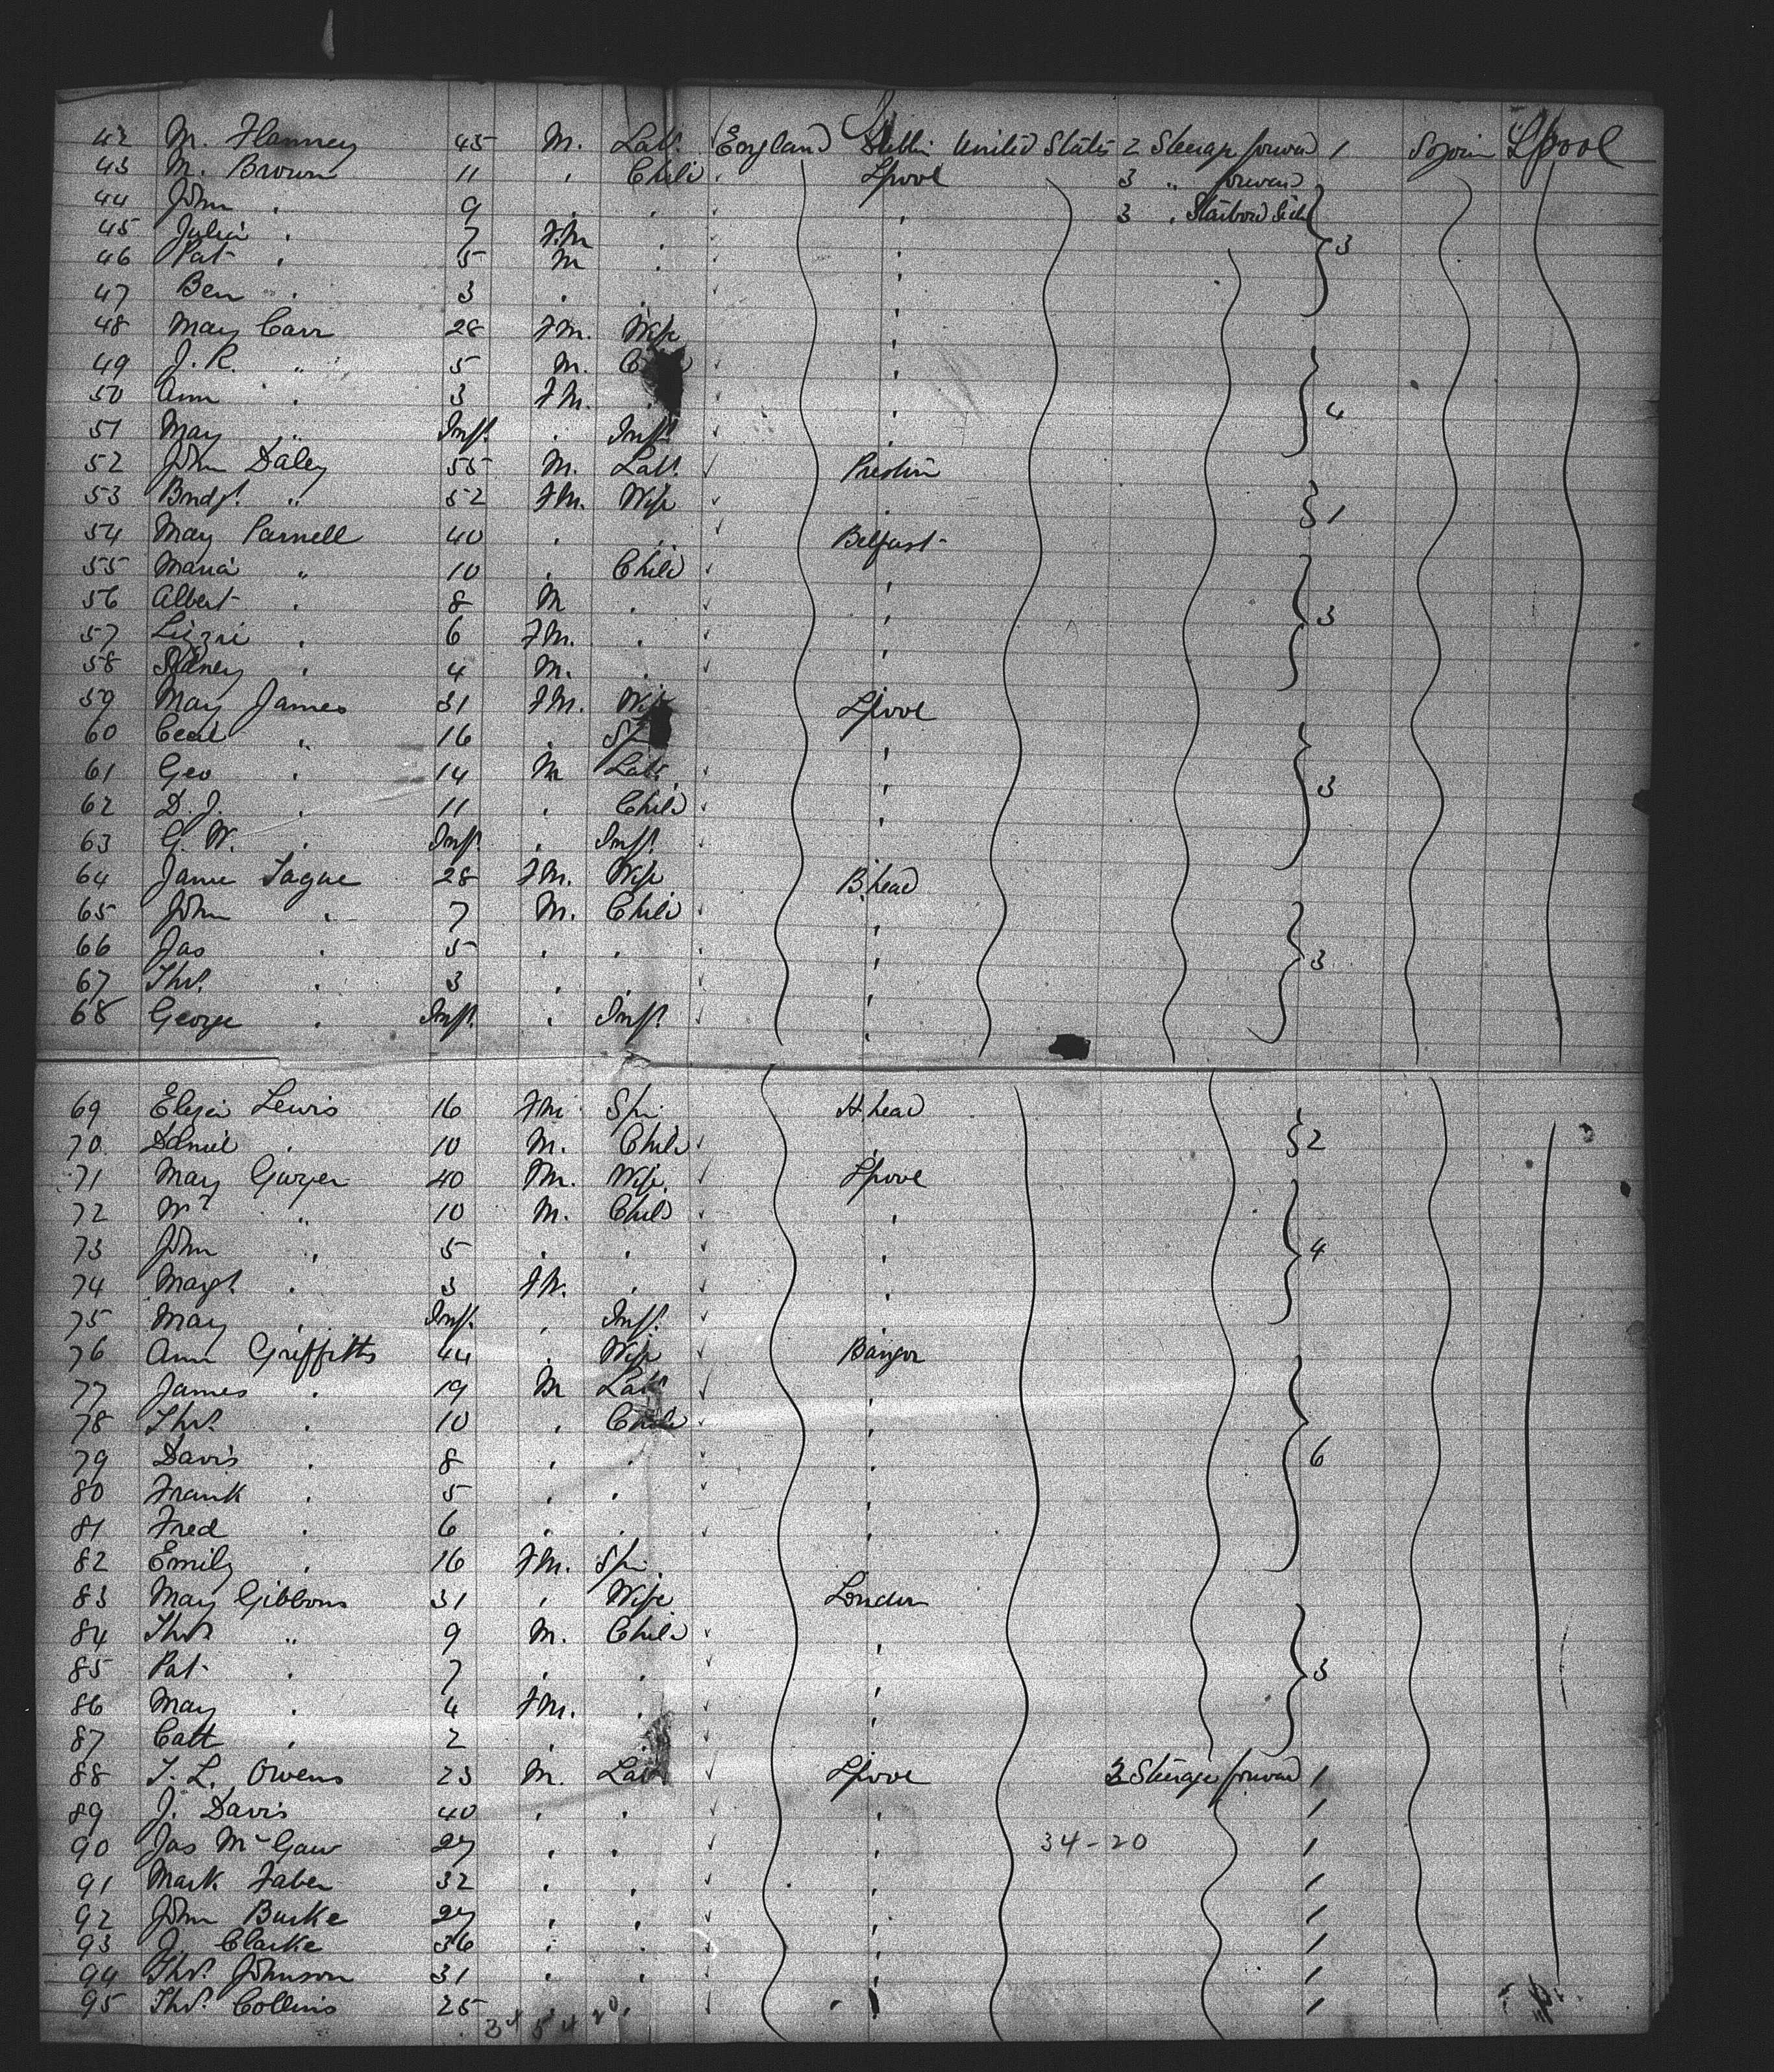 42 M. Flanney 45 M. Labr. England Dublin United States 2 Steerage forward 1 Sojourn L'pool
43 M. Brown 11 " Child L'pool 3 " forward
44 John " 9 " " " 3 " Starbord Side
45 Julia " 7 FM " " 3
46 Pat " 5 M " "
47 Ben " 3 " " "
48 Mary Carr 28 FM. Wife "
49 J. R. " 5 M. "
50 Ann " 3 FM. " " 4
51 May " Inft. " Inft. "
52 John Daley 55 M. Labr. Preston
53 Bridgt. " 52 FM. Wife " 1
54 Mary Parnell 40 " " Belfast
55 Maria " 10 " Child "
56 Albert " 8 M " " 3
57 Lizzie " 6 FM. " "
58 Sidney " 4 M. " "
59 Mary James 31 FM. Wife L'pool
60 Cecil " 16 " "
61 Geo " 14 M Labr. "
62 D. J. " 11 " Child " 3
63 G. W. " Inft. " Inft. "
64 Jane Tague 28 FM. Wife B.head
65 John " 7 M. Child "
66 Jas " 5 " " " 3
67 Thos. " 3 " " "
68 George " Inft. " Inft. "
69 Eliza Lewis 16 FM Spr. H.head
70 Daniel " 10 M. Child " 2
71 Mary Gwyer 40 M. Wife L'pool
72 Wm " 10 M. Child "
73 John " 5 " " " 4
74 Margt. " 3 FM. " "
75 May " Inft. " Inft. "
76 Ann Griffiths 44 " Wife Bangor
77 James " 19 M Labr "
78 Thos. " 10 " Child "
79 Davis " 8 " " " 6
80 Frank " 5 " " "
81 Fred " 6 " " "
82 Emily " 16 FM. Spr.
83 Mary Gibbons 31 " Wife London
84 Thos " 9 M. Child "
85 Pat " 7 " " " 3
86 May " 4 FM. " "
87 Catt " 2 " "
88 T. L. Owens 23 M. Labr L'pool 3 Steerage forward 1
89 J. Davis 40 " " " 1
90 Jas McGaw 27 " " " 34-20 1
91 Mark Faber 32 " " " 1
92 John Burke 27 " " " 1
93 J. Clarke 36 " " " 1
94 Thos. Johnson 31 " " " 1
95 Thos. Collins 25 " " " 1